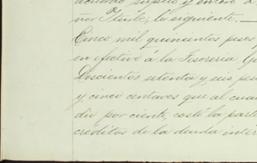 lo siguiente.
Cinco mil quinientos pesos
en efectivo á la Tesorería
Doscientos ochenta y seis
y cinco centavos que al cua
dio por ciento, costó la part
creditos de la deuda inter